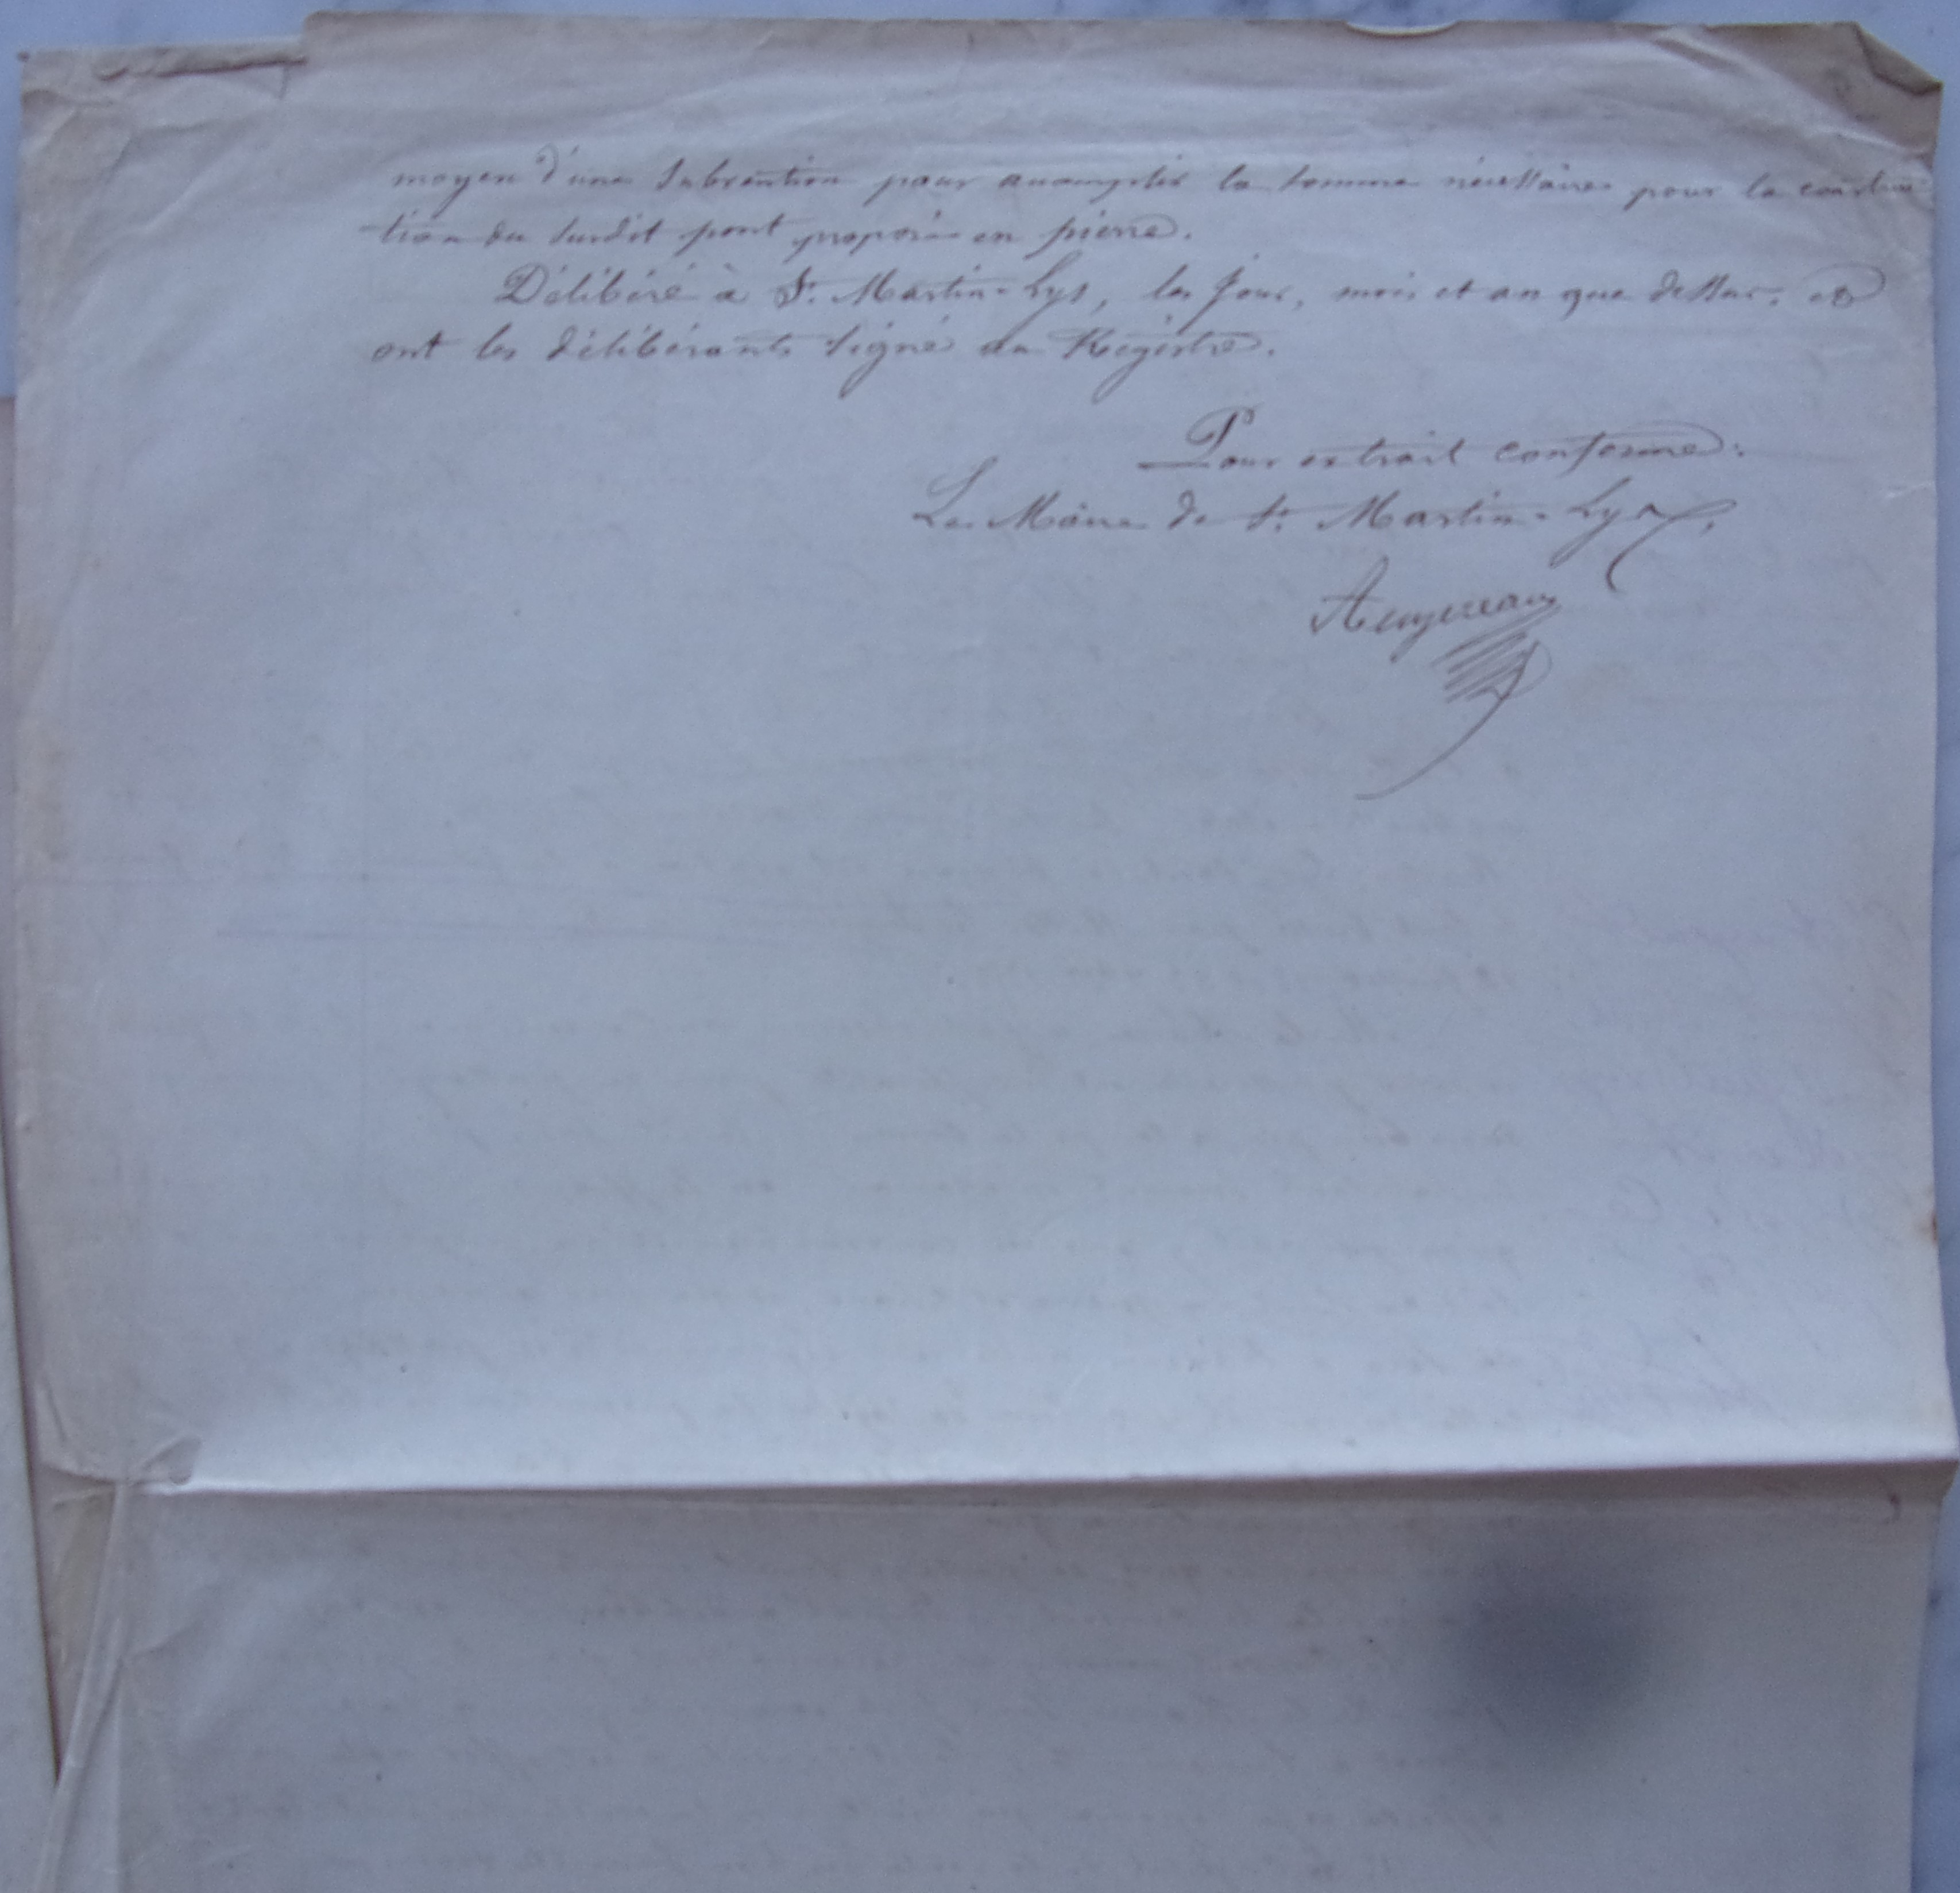 moyen d'une Subvention pour accomplir la somme nécessaire pour la construc
-tion du susdit pont proposé en pierre.
Délibéré à St. Martin-Lys, les jour, mois et an que dessus, et
ont les délibérants signé au Régistre.
Pour extrait conforme:
Le Maire de St. Martin-Lys,